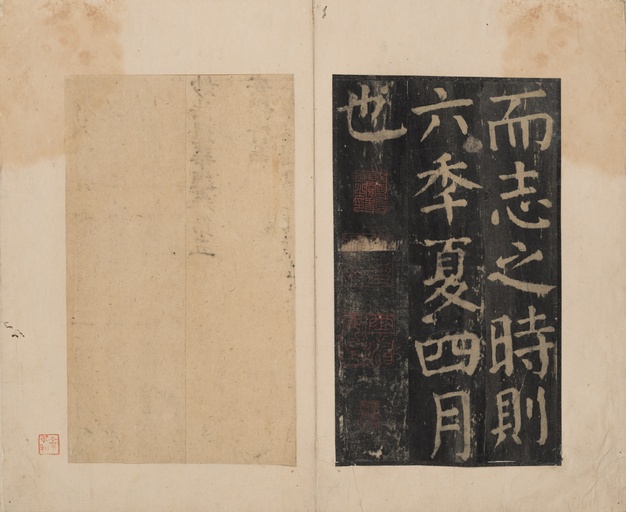 而志之時則
六秊夏四月
也